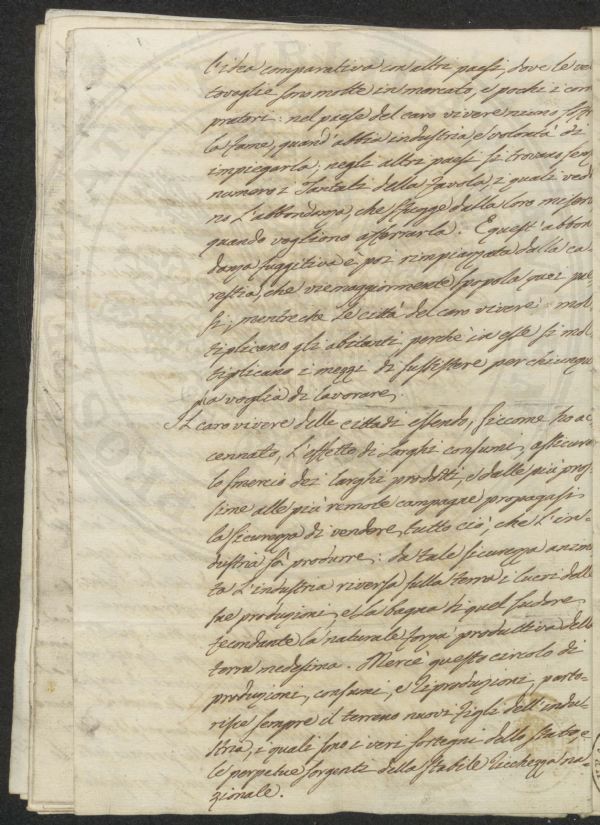 l'idea comparativa con altri paesi, dove le vet
tovaglie sono molte in mercato, e pochi i com
pratori: nel paese del caro vivere niuno soffre
la fame, quand' abbia industria, e volontà di
impiegarla; negli altri paesi si trovano sen
numero i Tantali della favola, i quali vedo
no l'abbondanza, che sfugge dalla loro miseria
quando vogliono afferrarla. E quest' abbon
danza fuggitiva è poi rimpiazzata dalla ca
restia, che viemaggiormente spopola quei pae
si, mentre che le città del caro vivere mol
tiplicano gli abitanti, perchè in esse si mol
tiplicano i mezzi di sussistere per chiunque
ha voglia di lavorare.
Il caro vivere delle città di essendo, siccome ho ac
cennato, l'effetto di larghi consumi, assicura
lo smercio dei larghi prodotti, e dalle più pros
sime alle più remote campagne propagasi
la sicurezza di vendere tutto ciò, che l'in
dustria fà produrre: da tale sicurezza anima
ta l'industria riversa sulla terra i lucri delle
sue produzioni, e la bagna di quel sudore
fecondante la naturale forza produttiva della
terra medesima. Mercè questo circolo di
produzioni, consumi, e riproduzioni, parto
risce sempre il terreno nuovi figli dell' indu
stria, i quali sono i veri sostegni dello stato, e
le perpetue sorgenti della stabile ricchezza na
zionale.